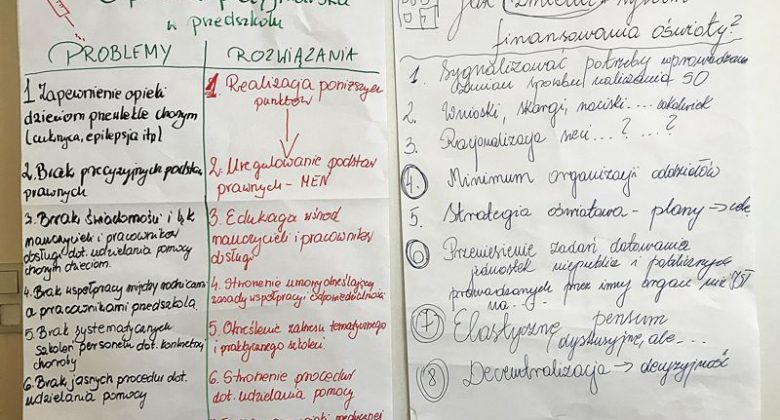 w przedszkolu
PROBLEMY
1. Zapewnienie opieki
dzieciom przewlekle chorym
(cukrzyca, epilepsja itp)
2. Brak precyzyjnych podstaw
prawnych
3. Brak świadomości i lęk
nauczycieli i pracowników
obsługi dot. udzielania pomocy
chorym dzieciom.
4. Brak współpracy między rodzicami
a pracownikami przedszkola.
5. Brak systematycznych
szkoleń personelu dot. konkretnej
choroby
6. Brak jasnych procedur dot.
udzielania pomocy
ROZWIĄZANIA
1. Realizacja poniższych
punktów
2. Uregulowanie podstaw
prawnych - MEN
3. Edukacja wśród
nauczycieli i pracowników
obsługi
4. Stworzenie umowy określającej
zasady współpracy i odpowiedzialności
5. Określenie zakresu tematycznego
i praktycznego szkoleń
6. Stworzenie procedur
dot. udzielania pomocy
Jak zmienić system
finansowania oświaty?
1. Sygnalizować potrzeby wprowadzenia
zmian sposobu naliczania SO
2. Wnioski, skargi, naciski....
3. Racjonalizacja sieci...? ...?
4. Minimum organizacji oddziałów
5. Strategia oświatowa - plany → cele
6. Przeniesienie zadań dotowania
jednostek niepublicz i publicznych
prowadzonych przez inny organ niż JST
na....
7. Elastyczne pensum
(dyskusyjne, ale...
8. Decentralizacja → decyzyjność